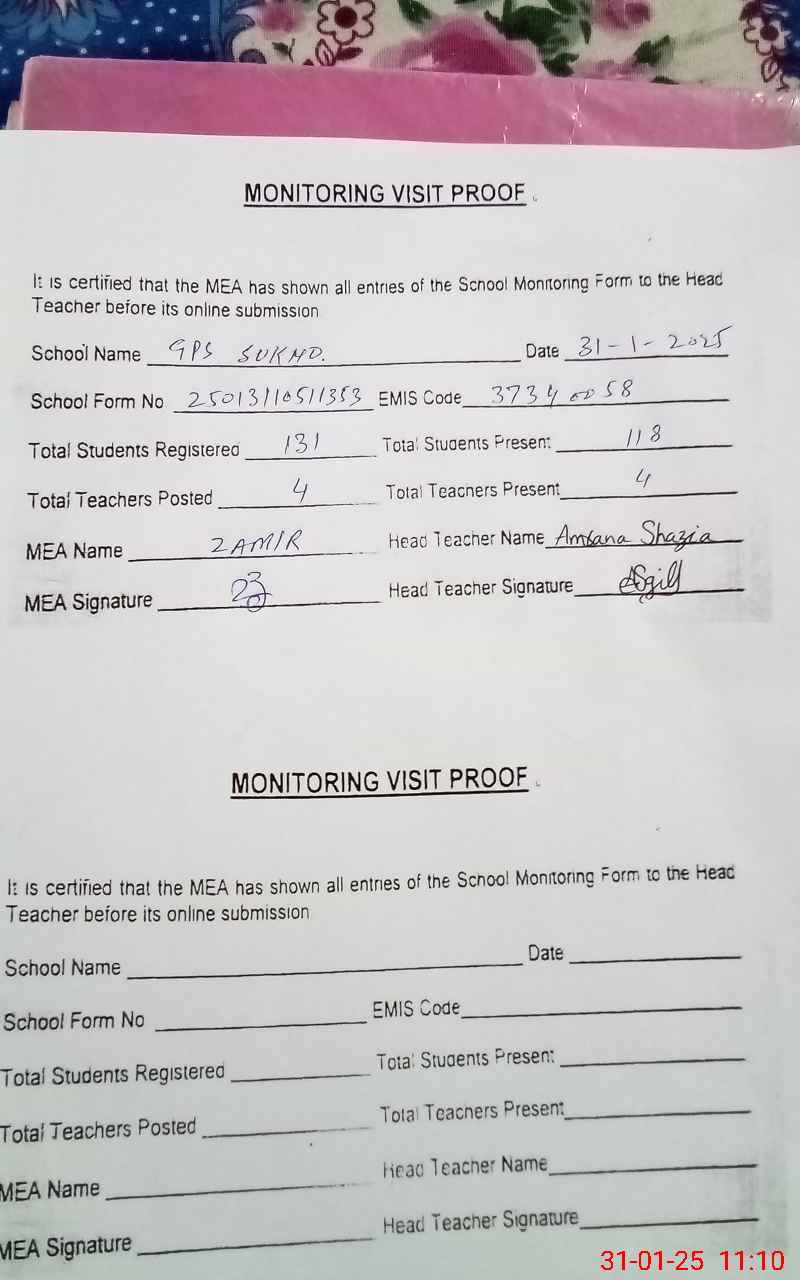 MONITORING VISIT PROOF
It is certified that the MEA has shown all entries of the School Monitoring Form to the Head
Teacher before its online submission
School Name GPS SUKHO. Date 31-1-2025
School Form No 25013110511353 EMIS Code 37340058
Total Students Registered 131 Total Students Present 118
Total Teachers Posted 4 Total Teachers Present 4
MEA Name ZAMIR Head Teacher Name Shazia
MEA Signature Head Teacher Signature
MONITORING VISIT PROOF
It is certified that the MEA has shown all entries of the School Monitoring Form to the Head
Teacher before its online submission
School Name Date
School Form No EMIS Code
Total Students Registered Total Students Present
Total Teachers Posted Total Teachers Present
MEA Name Head Teacher Name
MEA Signature Head Teacher Signature
31-01-25 11:10